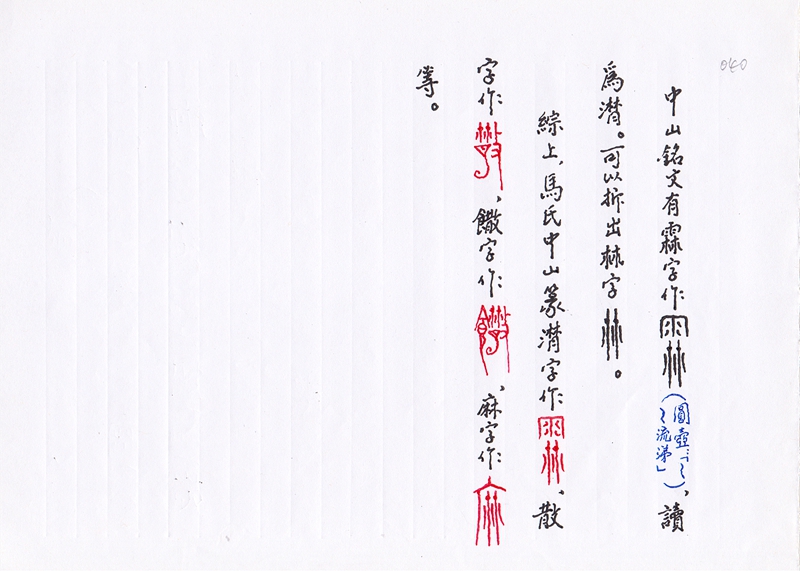 040
中山銘文有霖字作（圓壺「〻〻流涕」），讀
爲潸。可以拆出𣏟字。
綜上，馬氏中山篆潸字作、散
字作、饊字作、麻字作
等。